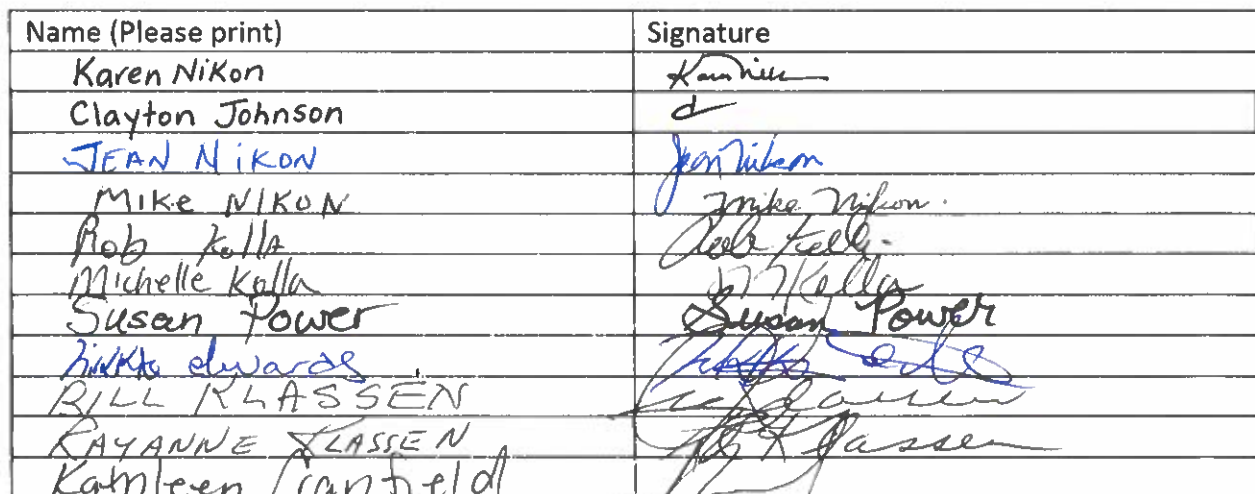 Name (Please print) Signature
Karen Nikon
Clayton Johnson
JEAN NiKON Jean Nikon
MIKe NIKON Mike Nikon.
Rob Kolla Rob Kolla
Michelle Kolla M Kolla
Susan Power Susan Power
edwards
BILL KLASSEN Klassen
RAYANNE KLASSEN R Klassen
Kathleen Cranfield